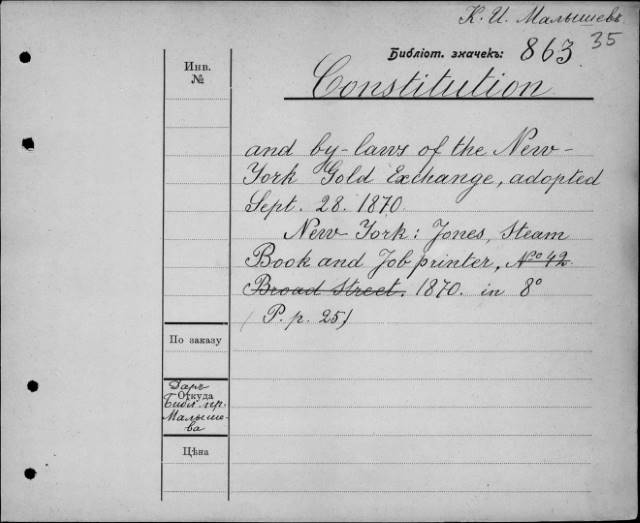 К. И. Малышевъ
35
Библіот. значекъ: 863
Инв.
№
Constitution
and by-laws of the New-
York Gold Exchange, adopted
Sept. 28. 1870.
New-York: Jones, Steam
Book and Job printer, No 42
Broad Street. 1870. in 8°
(P. p. 25)
По заказу
Даръ
Откуда
Библ. пр.
Малыше-
ва
Цѣна